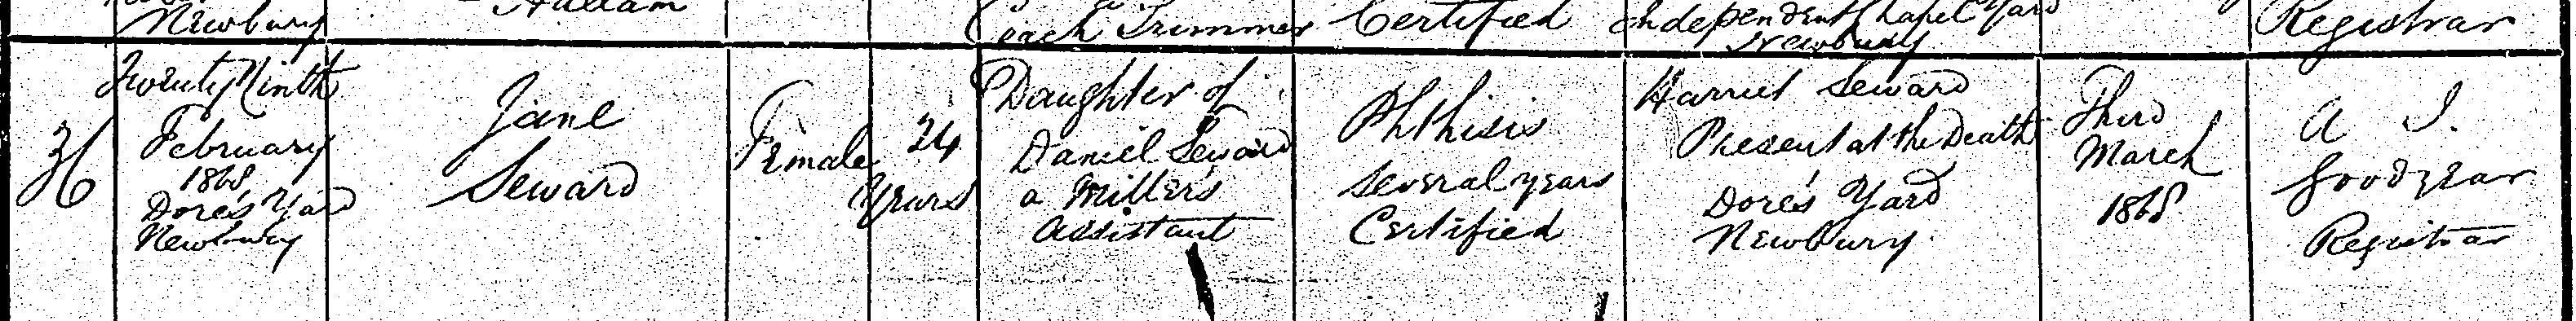 Newbury
Hallam
Coach Trimmer
Certified
Independent Chapel Yard
Newbury
Registrar
36
Twenty Ninth
February
1868
Dore's Yard
Newbury
Jane
Seward
Female
24
Years
Daughter of
Daniel Seward
a Miller's
Assistant
Phthisis
Several years
Certified
Harriet Seward
Present at the Death
Dore's Yard
Newbury
Third
March
1868
A J.
Goodyear
Registrar